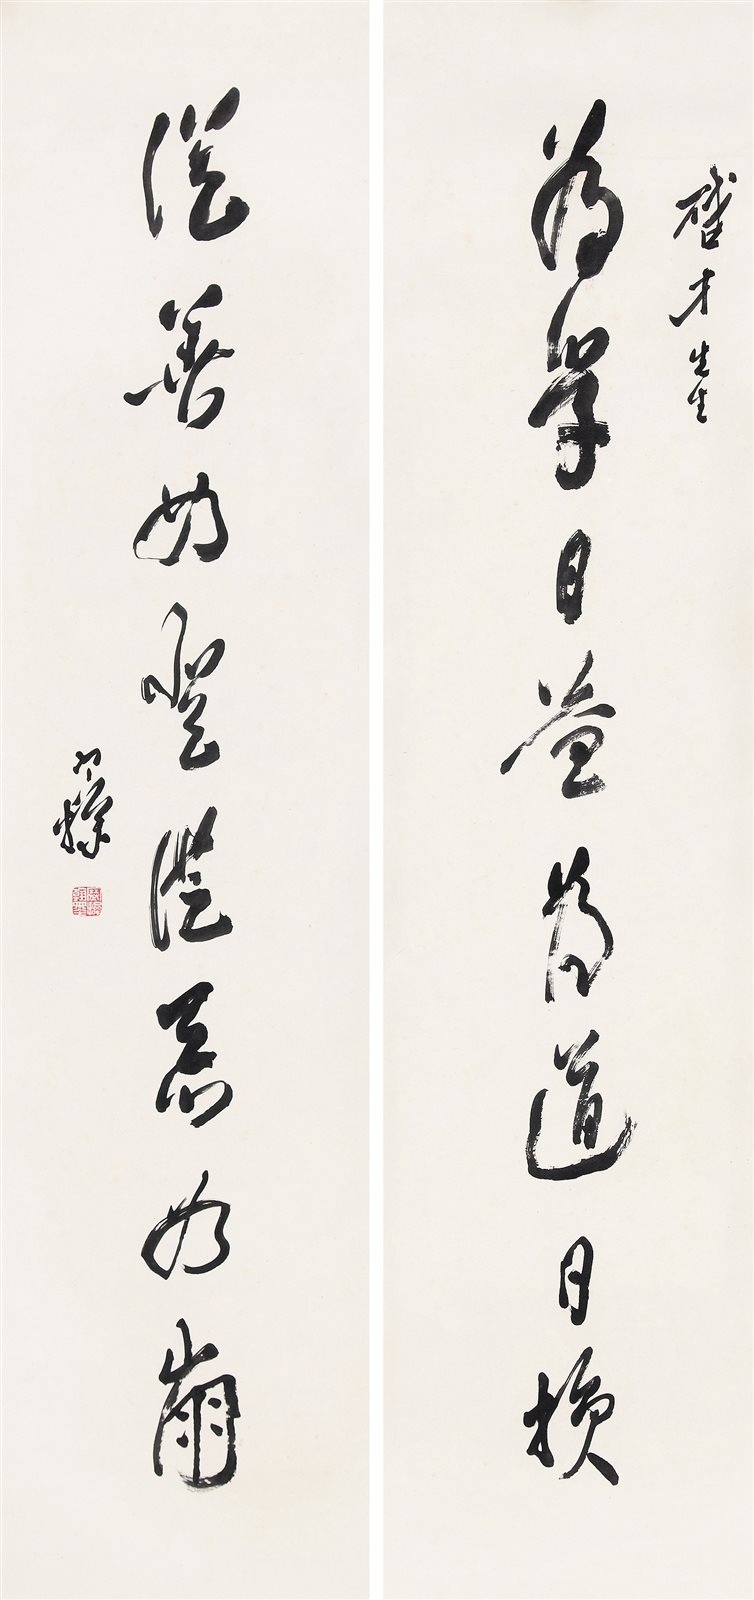 才先生
為學日益為道日損
從善如登從惡如崩
寒操